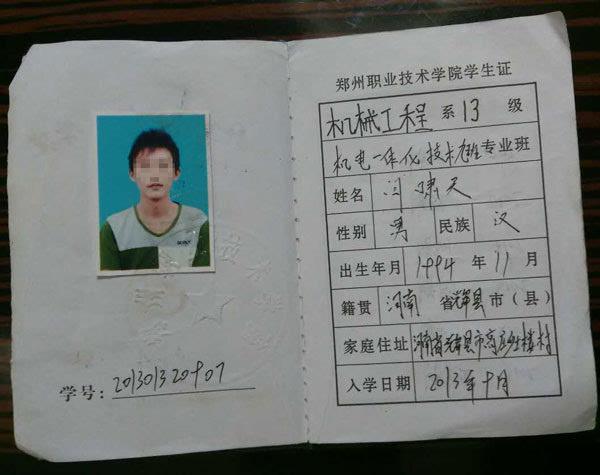 学号: 201301320907
郑州职业技术学院学生证
机械工程 系 13 级
机电一体化技术 专业班
姓名 闫啸天
性别 男 民族 汉
出生年月 1994 年 11 月
籍贯 河南 省 辉县 市(县)
家庭住址 河南省辉县市高庄乡楼村
入学日期 2013年十月